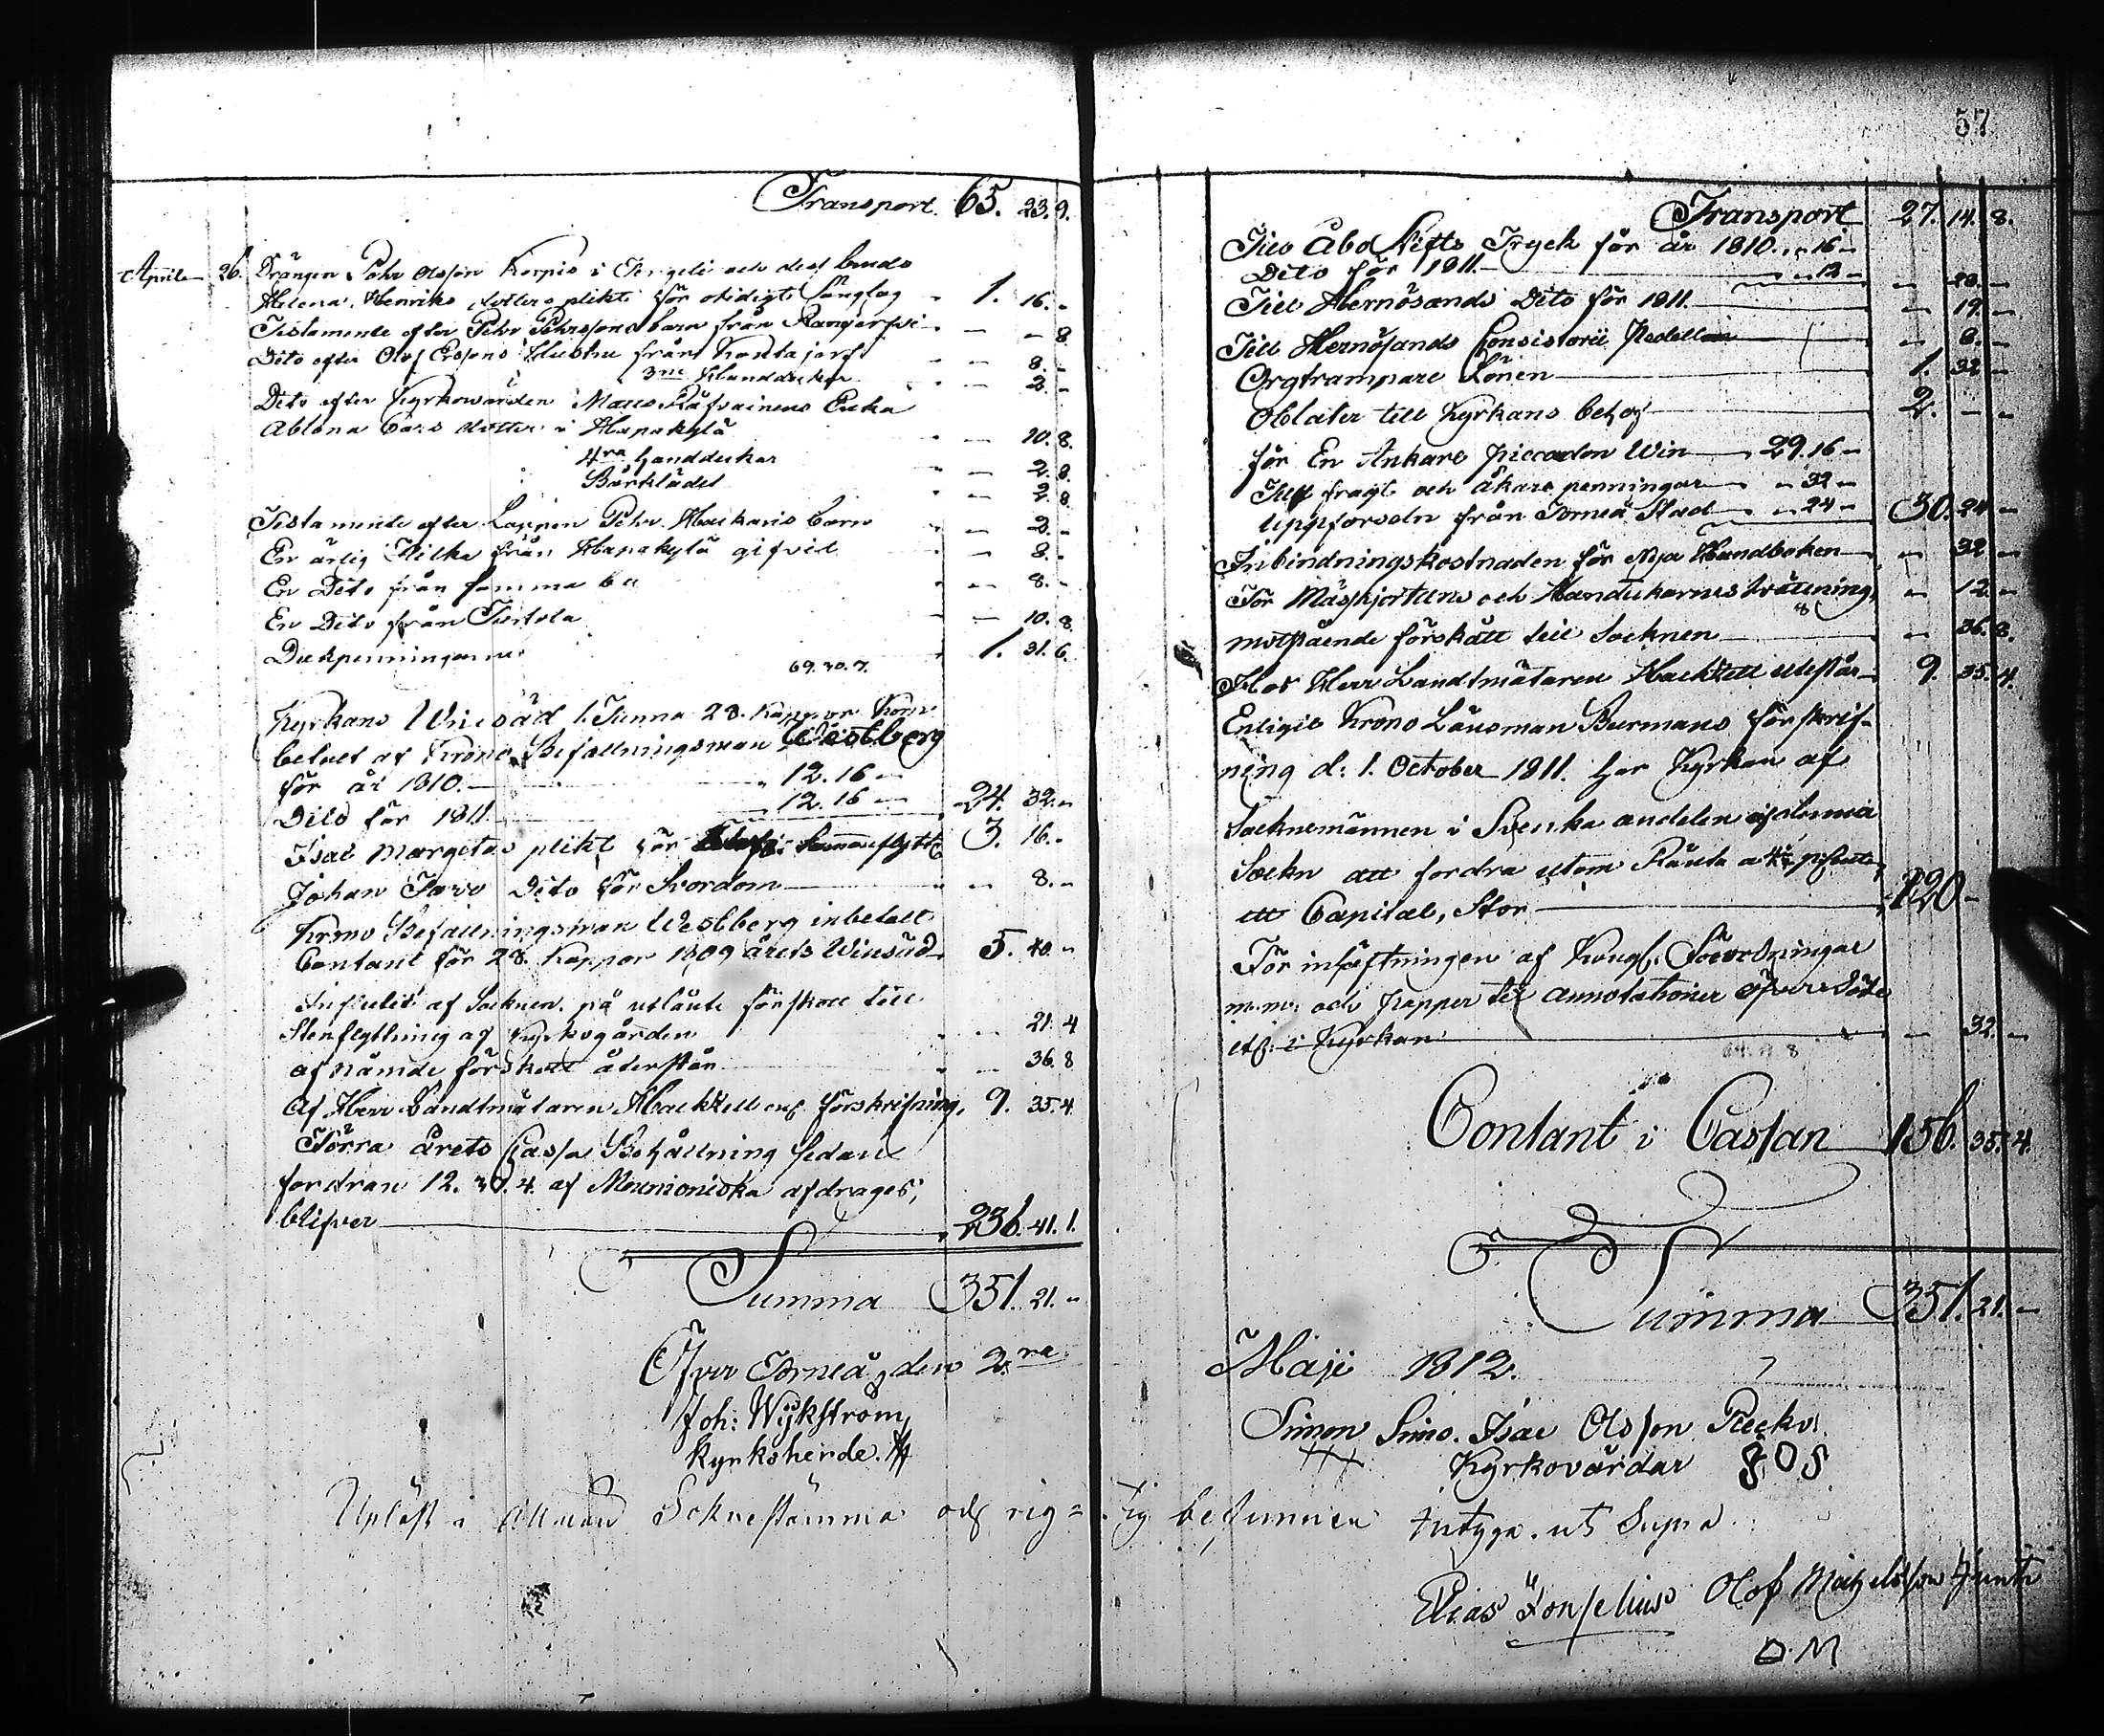 Transport. 65. 23. 9.
Aprile 26. Drängen Pehr Olsson Korpis i Tengeli och dess brud
Helena Henriks dotters plikt för otidigt Sänglag - 1. 16. -
Testamente efter Pehr Pehrssons barn från - - 8
Dito efter Olof Erssons Hustru från - 8. -
3ne Handdukar - 2. -
Dito efter Kyrkowärden Mats Enka
Ablona Lars dotter i Hapakylä - 10. 8.
4ra Handdukar - 2. 8.
Bårklädet - 2. 8
Testamente efter Lappen Pehr barn - 2. -
En ärlig Hilka från Hapakylä gifvit - 8. -
En Dito från samma by - 8. -
En Dito från Turtola - 10. 8.
1. 31. 6.
69. 30. 7.
Kyrkans Winsäd 1. Tunna 28. Kappor Korn
betalt af Krono Befallningsman Westberg
för år 1810. - 12. 16 -
Dito för 1811. - 12. 16 - 24. 32. -
Isac plikt för 3. 16. -
Johan Dito för Svordom - 8. -
Krono Befallningsman Westberg inbetalt
Contant för 28. Kappor 1809 årets Winsäd 5. 40 -
af Socknen på utlånte förskott till
Stenflyttning af Kyrkogården - 21. 4
af nämde förskott återstår - 36. 8
Af Herr Landtmätaren Hackzell enl. förskrifning, 9. 35. 4.
Förra årets Cassa Behållning sedan
fordran 12. 4. af Muonioniska afdrages,
blifver 236. 41. 1.
Summa 351. 21. -
Öfver Torneå, den 2.ra
Joh: Wykström,
Kyrkoherde.
Upläst i Allmän Soknestämma och rig=
57
Transport 27. 14. 8.
Till Åbo Stifts Tryck för år 1810. - 16 -
Dito för 1811. - 12 - - 28. -
Till Hernösands Dito för 1811. - 19. -
Till Hernösands Consistorii - 8. -
Orgtrampare Lönen 1. 32 -
Oblater till Kyrkans behof 2. - -
för En Ankare Win 29. 16 -
Till fragt och åkare penningar - 32 -
Uppforseln från Torneå Stad - 24 - 30. 24 -
Inbindningskostnaden för Nya Handboken - 32 -
För Mässkjortans och Handukarnes tvättning, - 12 -
motstående förskått till Socknen - 36. 8.
Hos Herr Landtmätaren Hackzell utestår 9. 35. 4.
Enligit Krono Länsman Burmans förskrif-
ning d: 1. October 1811. har Kyrkan af
Socknemännen i Svenska andelen af denna
Sockn att fordra utom Ränta
ett Capital, Stor 120 -
För inhäftningen af Kongl. Förordningar
m. m. och Papper till annotationer öfver
i Kyrkan - 32. -
Contant i Cassan 156. 35. 4.
Summa 351. 21. -
Maji 1812.
Simon Simo. Isac Olsson
Kyrkovärdar IOS
tig befunnen intyga. ut Supra
Elias Fonselius Olof Michelsson
O M